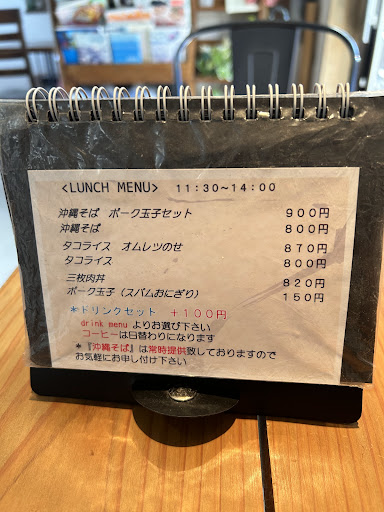 <LUNCH MENU> 11:30~14:00
沖縄そば ポーク玉子セット 900円
沖縄そば 800円
タコライス オムレツのせ 870円
タコライス 800円
三枚肉丼 820円
ポーク玉子(スパムおにぎり) 150円
*ドリンクセット +100円
drink menu よりお選び下さい
コーヒーは日替わりになります
*『沖縄そば』は常時提供致しておりますので
お気軽にお申し付け下さい